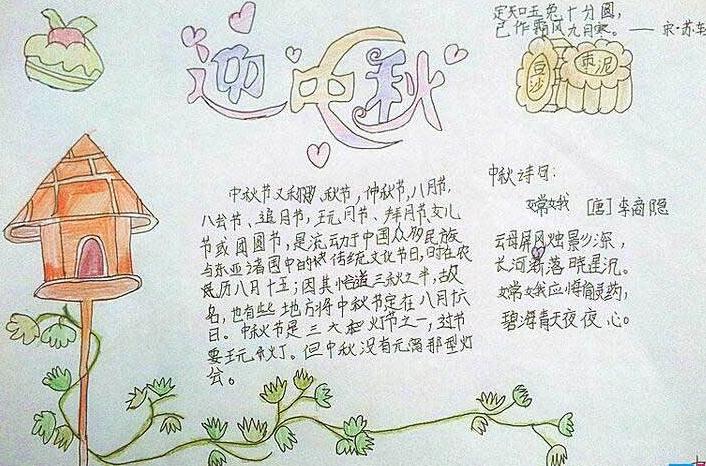 迎中秋
定知玉兔十分圆，
已作霜风九月寒。——宋·苏轼
豆沙
枣泥
中秋节又称 秋节，仲秋节，八月节，
八 节、追月节，玩月节、拜月节、女儿
节或团圆节，是流 于中国众多民族
与东亚诸国中的 传统文化节日，时在农
民历八月十五；因其恰 三秋之半，故
名，也有些地方将中秋节定在八月十六
日。中秋节是三大 灯节之一，过节
要玩 灯。但中秋没有元宵那型灯
会。
中秋诗句：
嫦娥 [唐]李商隐
云母屏风烛影深，
长河 落晓星沉。
嫦娥应悔偷灵药，
碧海青天夜夜心。